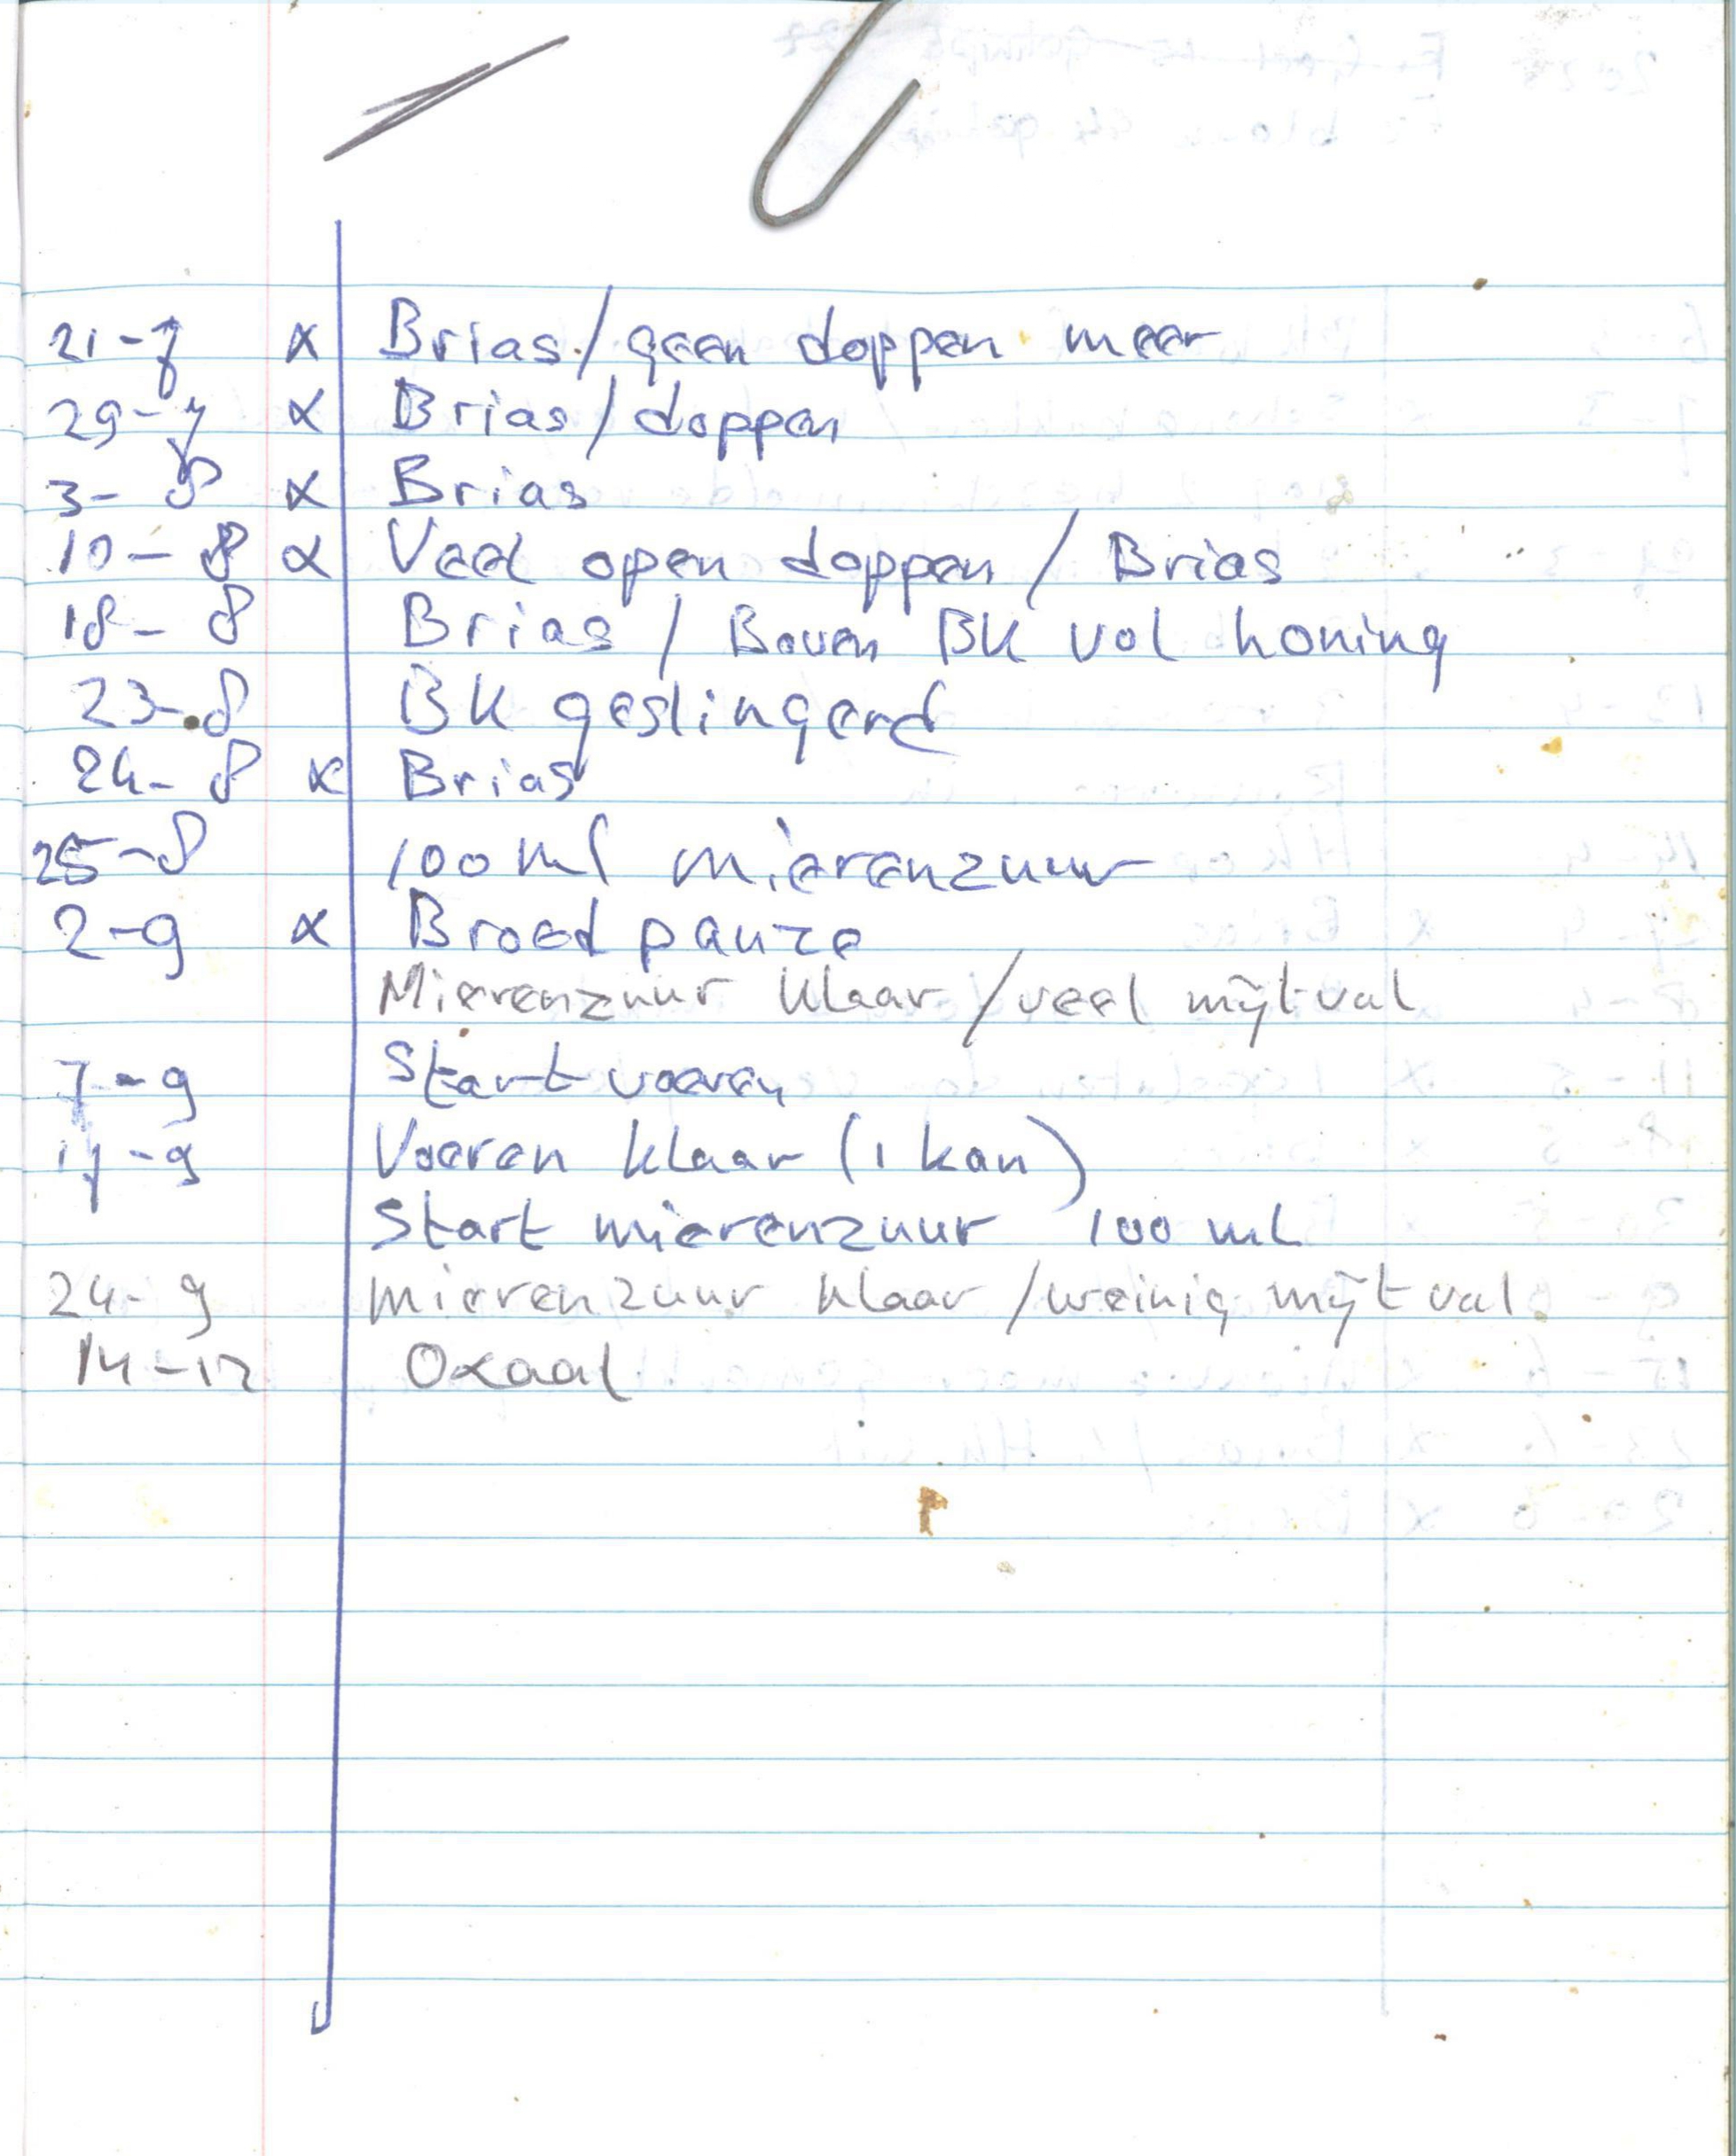 21-7 x Brias / geen doppen meer
29-7 x Brias / doppen
3-8 x Brias
10-8 x Veel open doppen / Brias
18-8 Brias / Boven BK vol honing
23-8 BK geslingerd
24-8 x Brias
25-8 100 ml mierenzuur
2-9 x Broedpauze
Mierenzuur klaar / veel mijtval
7-9 Start voeren
17-9 Voeren klaar (1 kan)
Start mierenzuur 100 ml
24-9 mierenzuur klaar / weinig mijtval.
14-12 Oxaal